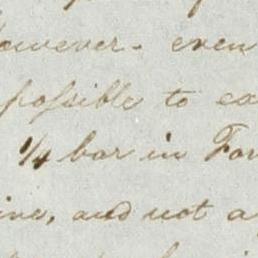 owever. even
possible to ex
1/4 bar in For
ine, and not a